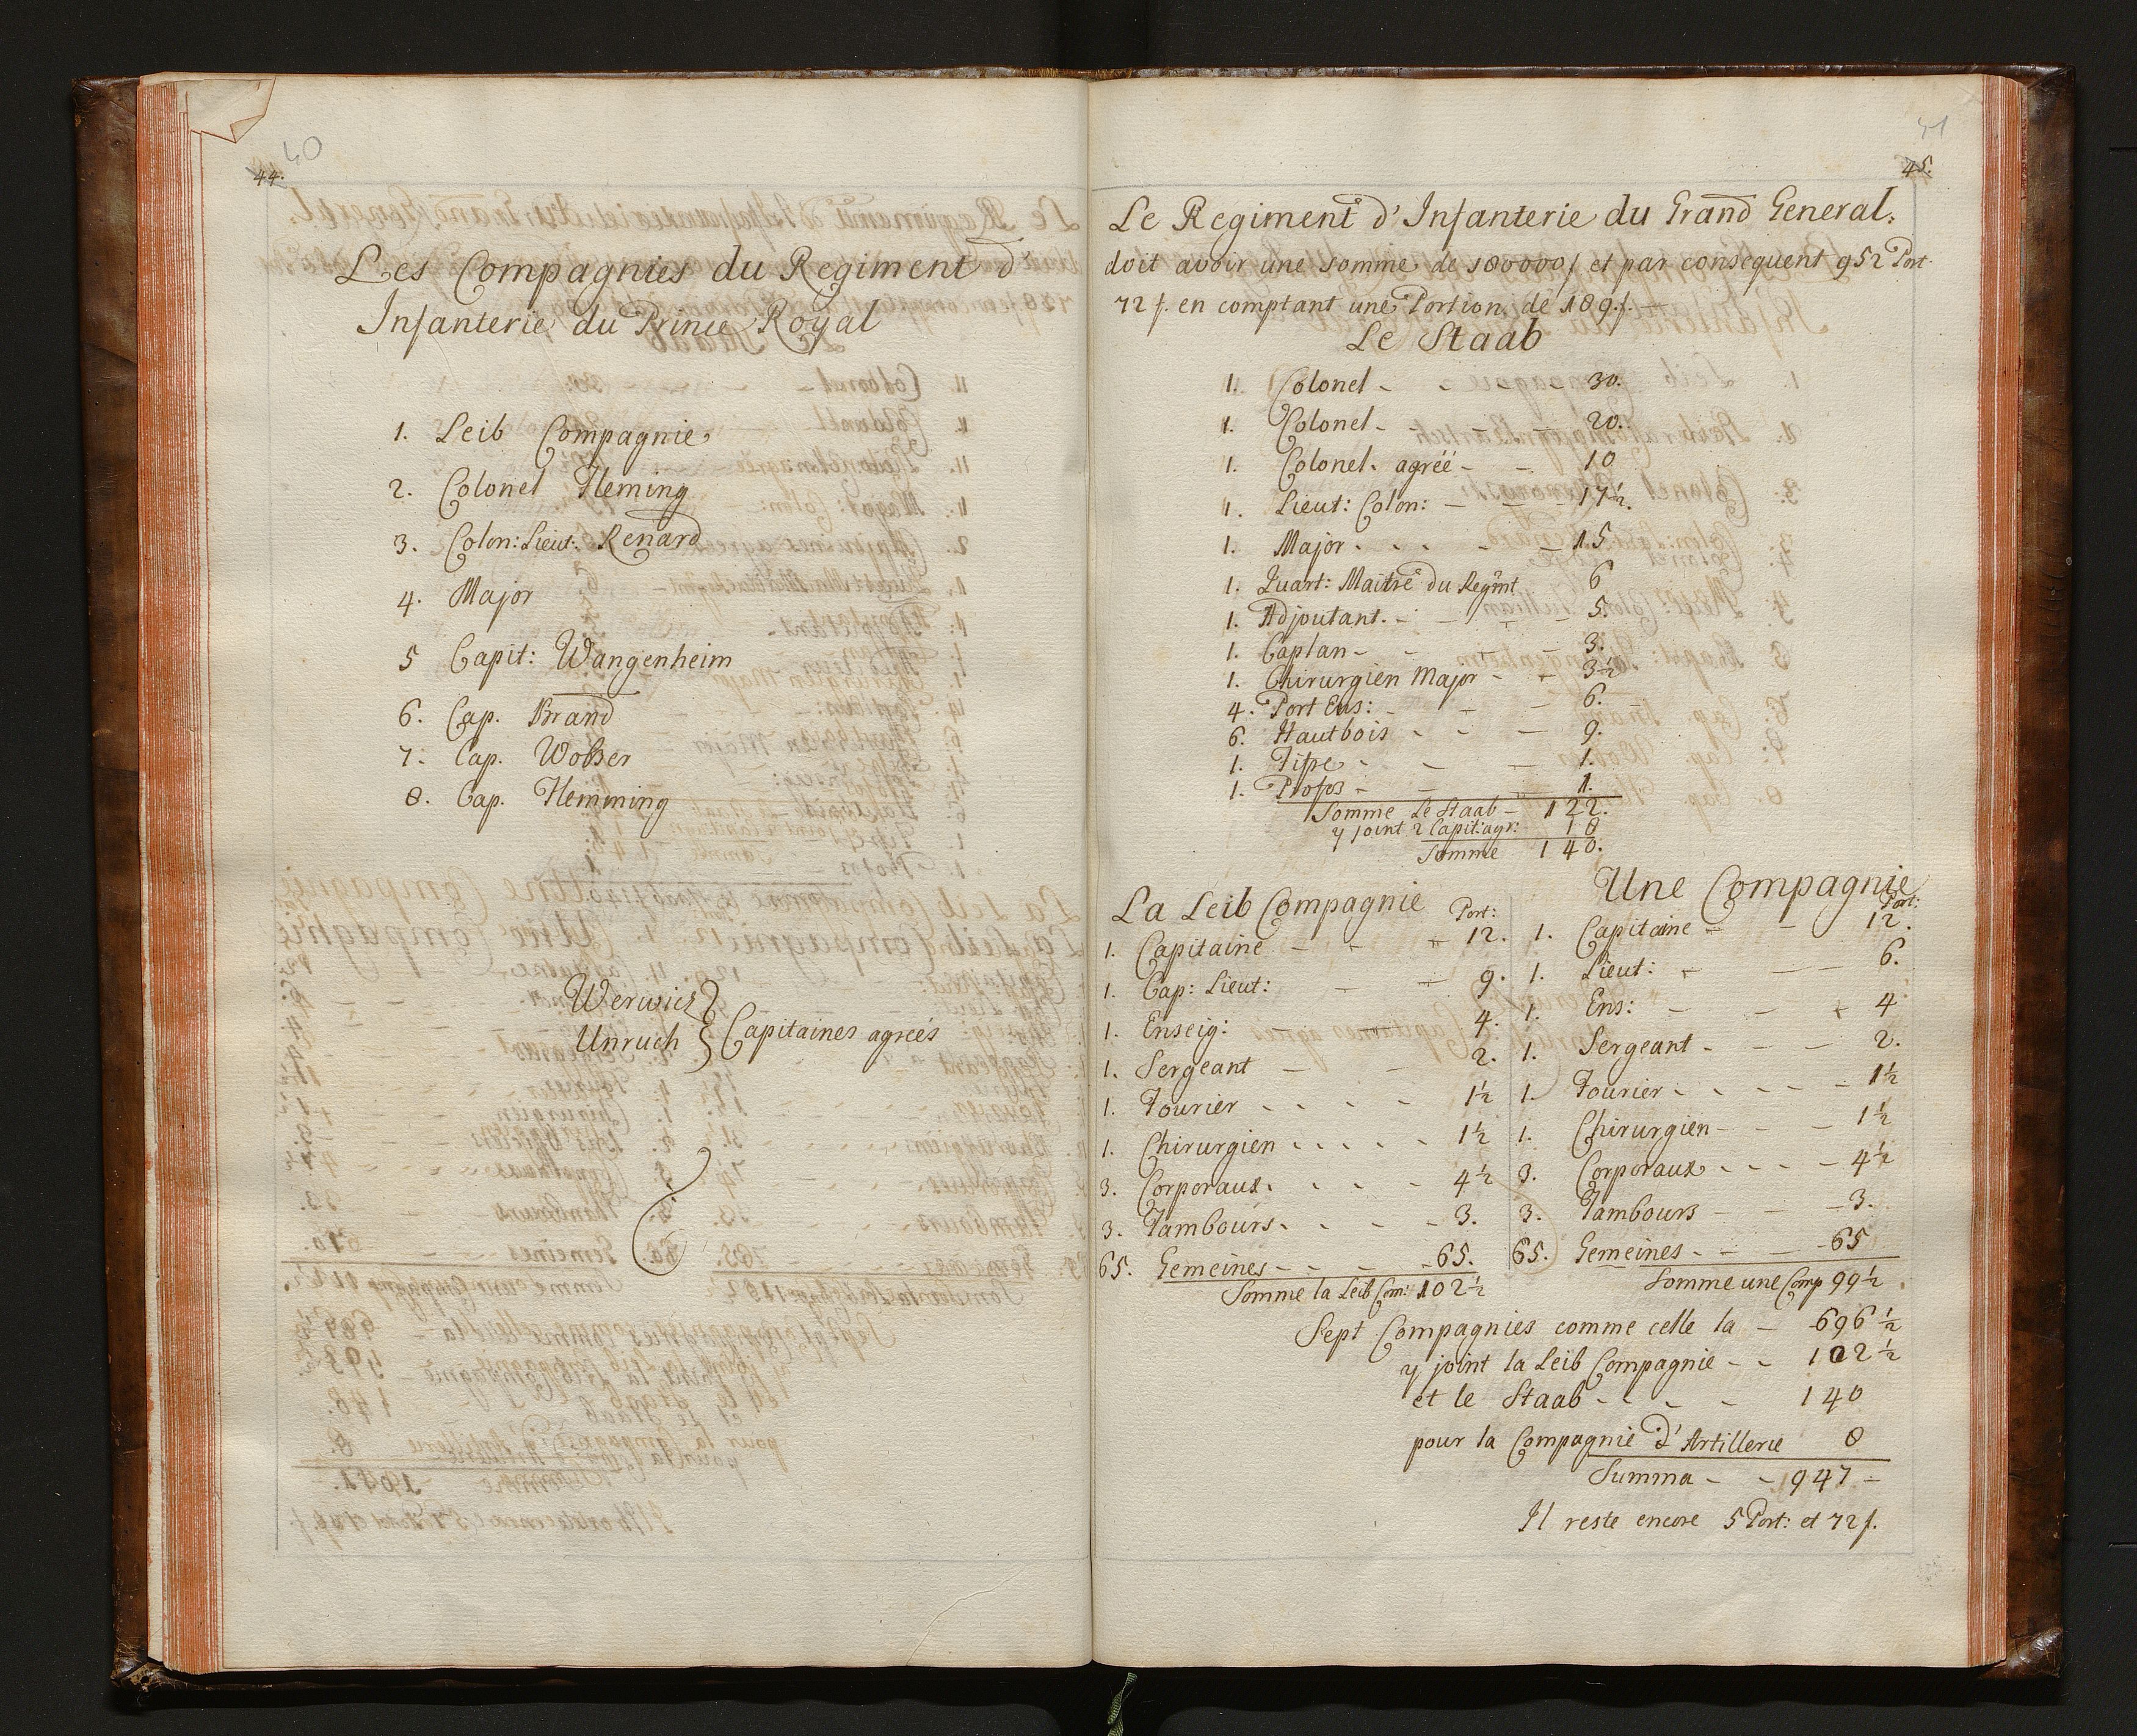 40
44.
Les Compagnies du Regiment d'
Infanterie du Prince Royal
1. Leib Compagnie
2. Colonel Heming
3. Colon: Lieut: Renard
4. Major
5 Capit: Wangenheim
6. Cap. Brand
7. Cap. Wolser
8. Cap. Hemming
Werwick
Unruch } Capitaines agreés
41
45.
Le Regiment d'Infanterie du Grand General.
doit avoir une somme de 180000 f et par consequent 952 Port
72 f. en comptant une Portion de 189. f. —
Le Staab
1. Colonel - - - - 30.
1. Colonel - - - 20.
1. Colonel agréé - - 10
1. Lieut: Colon: - - - 17½.
1. Major - - - - - 15
1. Quart: Maitre du Regmt 6
1. Adjoutant. - - - - 5.
1. Caplan - - - - 3.
1. Chirurgien Major - - 3½
4. Port Ens: - - - 6.
6. Hautbois - - - 9.
1. Fifre - - - 1.
1. Profos - - - 1.
Somme Le Staab - 122.
y joint 2 Capit: agr: 18
Somme 140.
La Leib Compagnie Port:
1. Capitaine - - - 12.
1. Cap: Lieut: - - 9.
1. Enseig: 4.
1. Sergeant - - 2.
1. Fourier - - - - 1½
1. Chirurgien - - - - - 1½
3. Corporaux. - - - - 4½
3. Tambours. - - - 3.
65. Gemeines - - - - 65.
Somme la Leib Com: 102½
Une Compagnie
Port:
1. Capitaine - - 12.
1. Lieut: - - - 6.
1. Ens: - - - 4
1. Sergeant - - - 2.
1. Fourier - - - - - 1½
1. Chirurgien - - - 1½
3. Corporaux - - - - 4½
3. Tambours - - - 3.
65. Gemeines - - - 65
Somme une Comp 99½.
Sept Compagnies comme celle la — 696½
y joint la Leib Compagnie - - 102½
et le Staab - - - - 140
pour la Compagnie d'Artillerie 8
Summa - - 947 -
Il reste encore 5 Port: et 72 f.